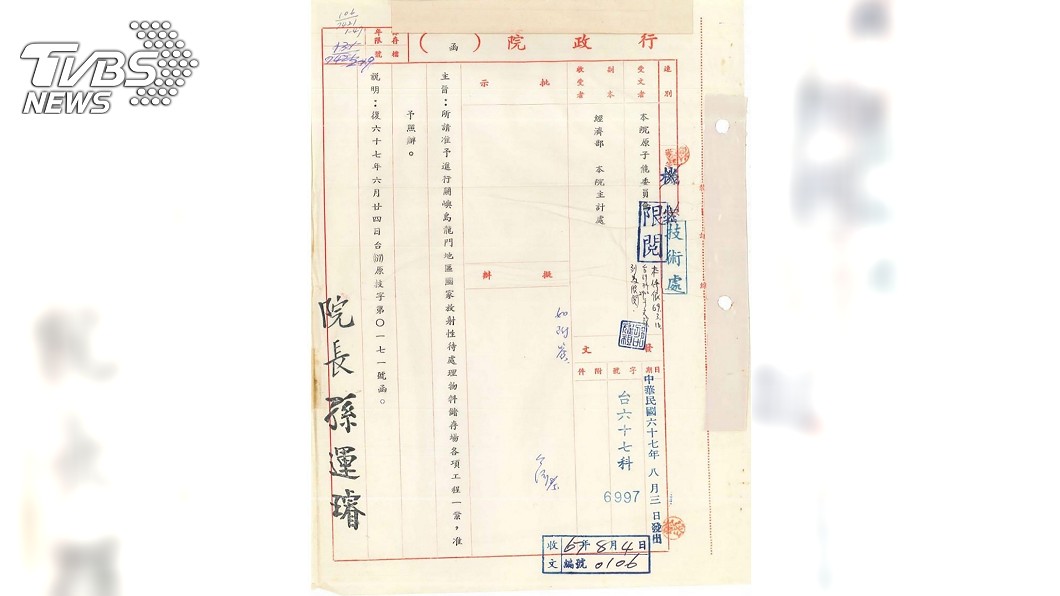 TVBS
NEWS
行政院（函）
檔存
號
年限
106
速別
受文者
本院原子能委員會
副本
收受者
經濟部　本院主計處
機
技術處
限閱
批示
擬辦
如附簽
發文
日期
字號
附件
中華民國六十七年八月三日發出
台六十七科
6997
主旨：所請准予進行蘭嶼島龍門地區國家放射性待處理物料儲存場各項工程一案，准
予照辦。
說明：復六十七年六月廿四日台(67)原技字第〇一七一號函。
院長孫運璿
收文
67年8月4日
編號 0106